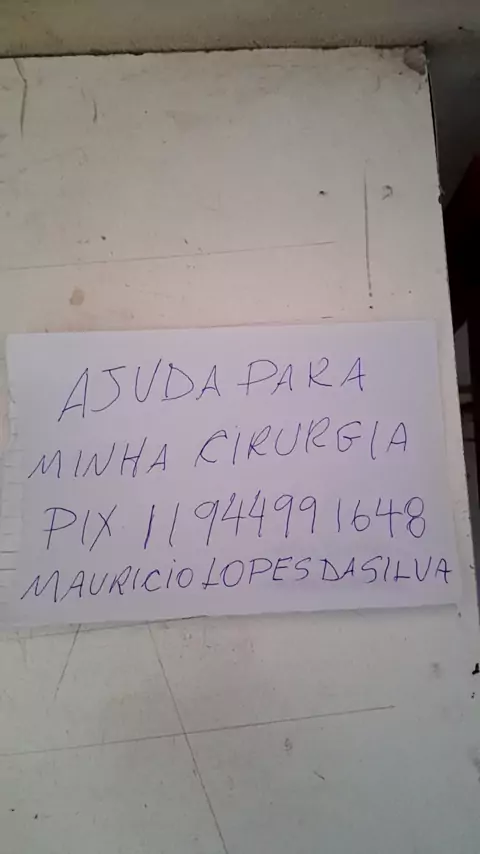 AJUDA PARA
MINHA CIRURGIA
PIX 11944991648
MAURICIO LOPES DA SILVA